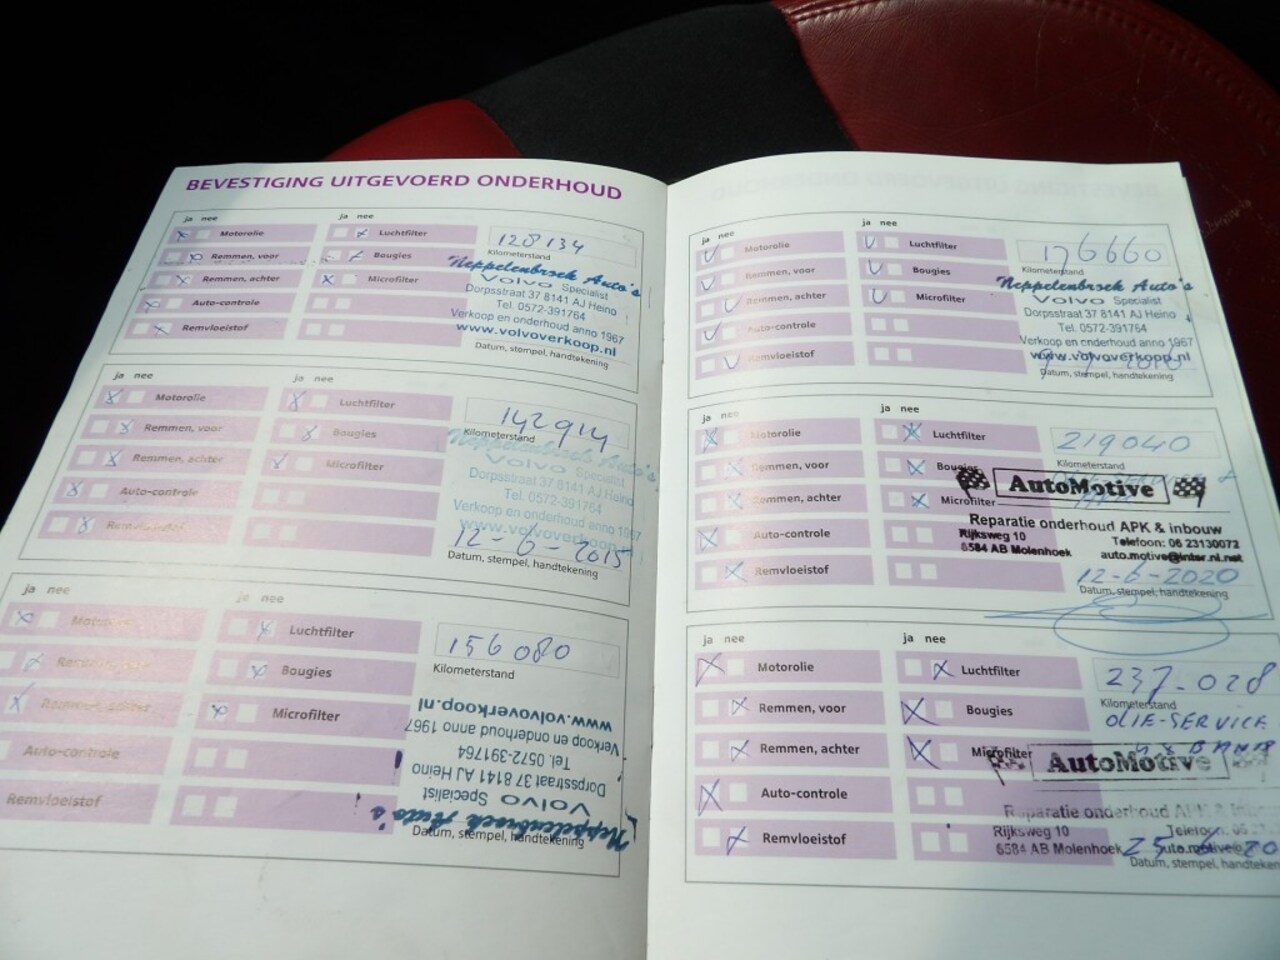 BEVESTIGING UITGEVOERD ONDERHOUD
ja nee
ja nee
Motorolie
Luchtfilter
128134
Remmen, voor
Bougies
Kilometerstand
Remmen, achter
Microfilter
Neppelenbroek Auto's
Volvo Specialist
Dorpsstraat 37 8141 AJ Heino
Tel. 0572-391764
Verkoop en onderhoud anno 1967
www.volvoverkoop.nl
Auto-controle
Remvloeistof
Datum, stempel, handtekening
ja nee
ja nee
Motorolie
Luchtfilter
142914
Remmen, voor
Bougies
Kilometerstand
Remmen, achter
Microfilter
Neppelenbroek Auto's
Volvo Specialist
Dorpsstraat 37 8141 AJ Heino
Tel. 0572-391764
Verkoop en onderhoud anno 1967
www.volvoverkoop
Auto-controle
Remvloeistof
12-6-2015
Datum, stempel, handtekening
ja nee
ja nee
Motorolie
Luchtfilter
156080
Remmen, voor
Bougies
Kilometerstand
Remmen, achter
Microfilter
Auto-controle
Remvloeistof
Neppelenbroek Auto's
Volvo Specialist
Dorpsstraat 37 8141 AJ Heino
Tel. 0572-391764
Verkoop en onderhoud anno 1967
www.volvoverkoop.nl
Datum, stempel, handtekening
ja nee
ja nee
Motorolie
Luchtfilter
176660
Remmen, voor
Bougies
Kilometerstand
Remmen, achter
Microfilter
Neppelenbroek Auto's
Volvo Specialist
Dorpsstraat 37 8141 AJ Heino
Tel. 0572-391764
Verkoop en onderhoud anno 1967
www.volvoverkoop.nl
Auto-controle
Remvloeistof
Datum, stempel, handtekening
ja nee
ja nee
Motorolie
Luchtfilter
219040
Remmen, voor
Bougies
Kilometerstand
Remmen, achter
Microfilter
AutoMotive
Reparatie onderhoud APK & inbouw
Rijksweg 10
Telefoon: 06 23130072
6584 AB Molenhoek
auto.motive@inter.nl.net
Auto-controle
Remvloeistof
12-6-2020
Datum, stempel, handtekening
ja nee
ja nee
Motorolie
Luchtfilter
237.028
Remmen, voor
Bougies
Kilometerstand
OLIE-SERVICE
Remmen, achter
Microfilter
AutoMotive
Auto-controle
Reparatie onderhoud APK &
Remvloeistof
Rijksweg 10
6584 AB Molenhoek
Datum, stempel, handtekening